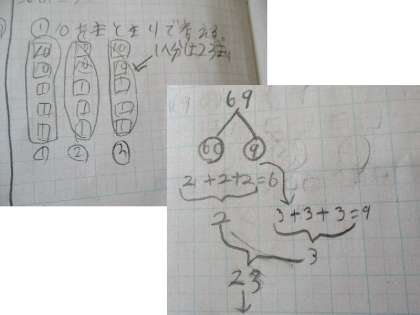 10のまとまりで考える。
1人分は23まい
10 10 10
10 10 10
1 1 1
1 1 1
1 1 1
① ② ③
69
60 9
2+2+2=6
3+3+3=9
2
3
23